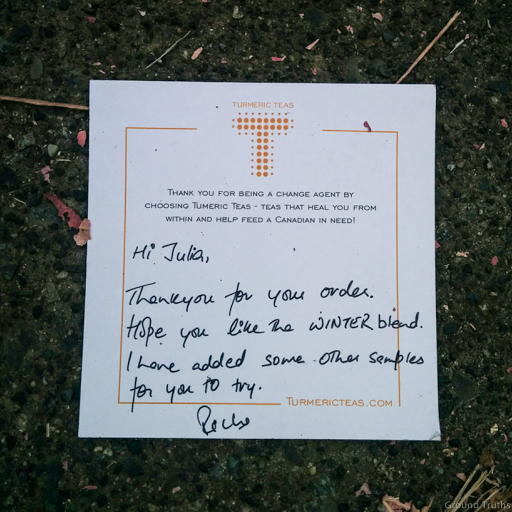 TURMERIC TEAS
T
THANK YOU FOR BEING A CHANGE AGENT BY
CHOOSING TUMERIC TEAS - TEAS THAT HEAL YOU FROM
WITHIN AND HELP FEED A CANADIAN IN NEED!
Hi Julia,
Thankyou for your order.
Hope you like the WINTER blend.
I have added some other samples
for you to try.
TURMERICTEAS.COM
Ground Truths